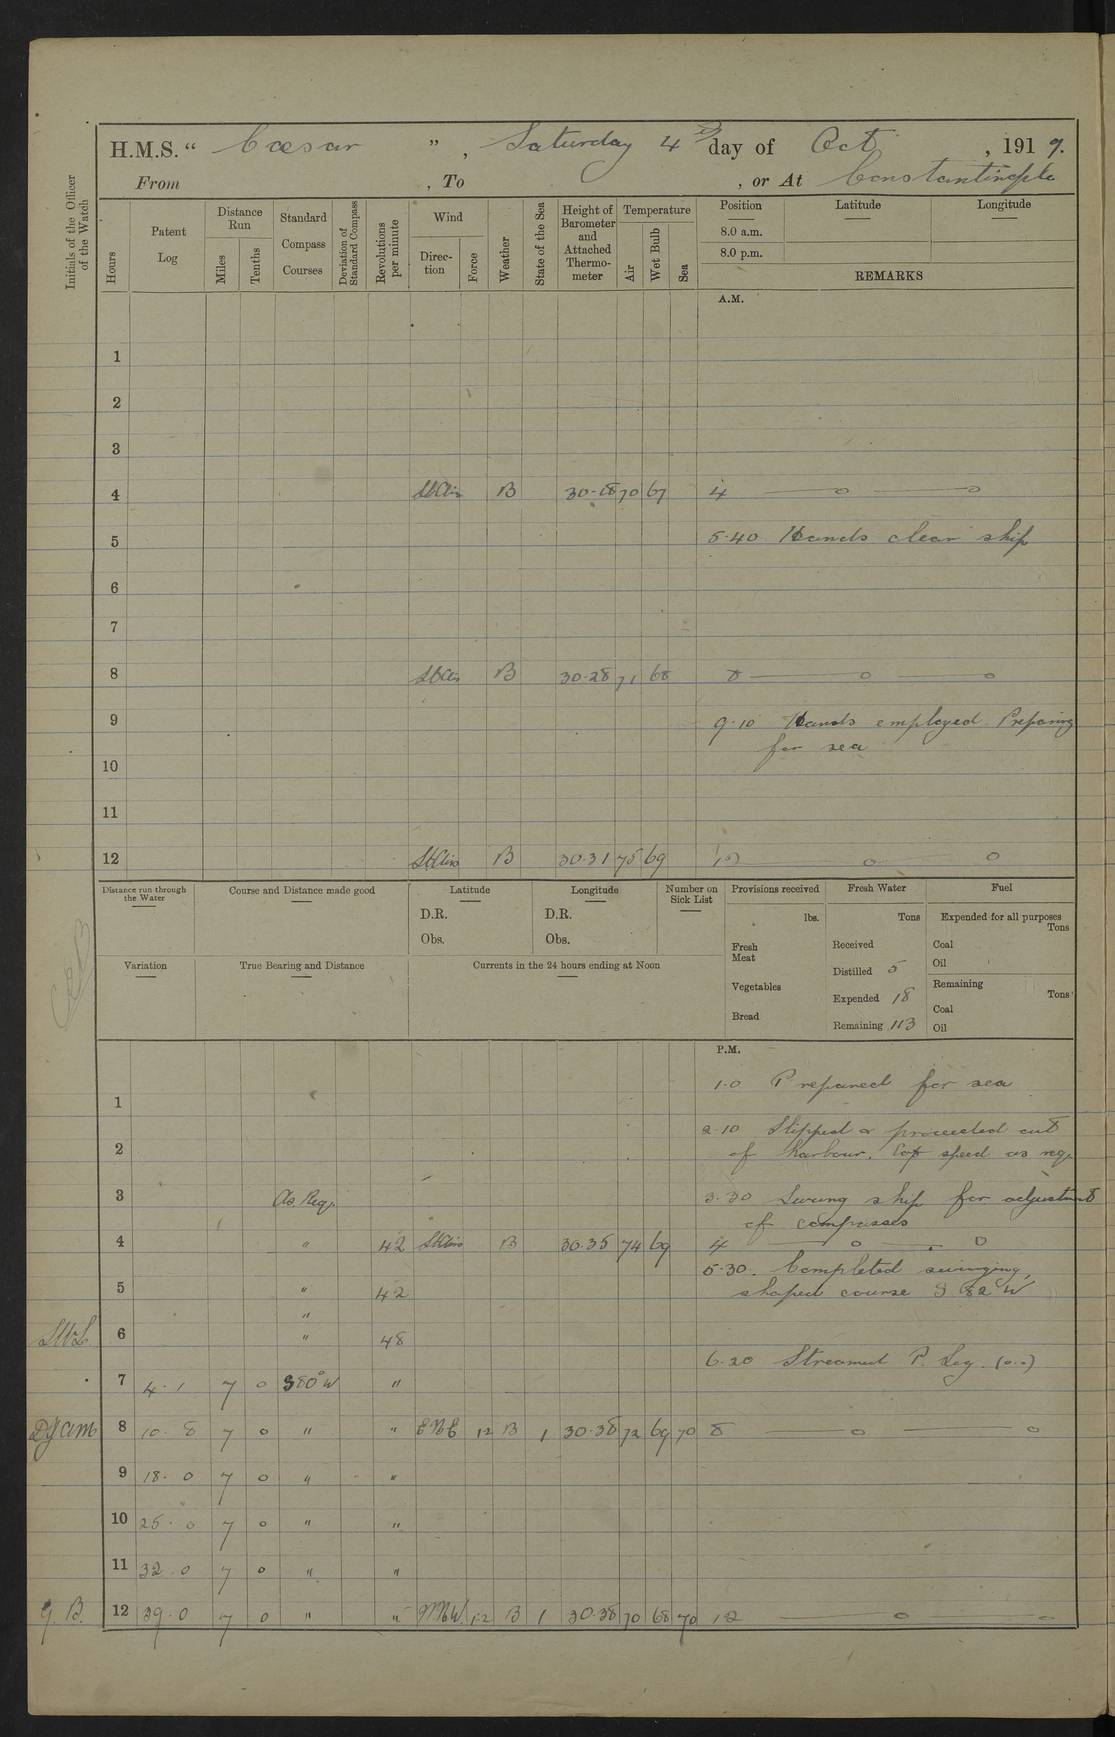 H.M.S. “ Cæsar ” , Saturday 4th day of Oct , 1919.
From , To , or At Constantinople
Initials of the Officer of the Watch
Hours
Patent Log
Distance Run
Miles
Tenths
Standard Compass Courses
Deviation of Standard Compass
Revolutions per minute
Wind
Direction
Force
Weather
State of the Sea
Height of Barometer and Attached Thermometer
Temperature
Air
Wet Bulb
Sea
Position Latitude Longitude
8.0 a.m.
8.0 p.m.
REMARKS
A.M.
1
2
3
4 B 30-18 70 67 4 — o — o
5 5.40 Hands clear ship
6
7
8 B 30.28 71 68 8 — o — o
9 9.10 Hands employed Preparing
for sea
10
11
12 B 30.31 75 69 12 — o — o
Distance run through the Water
Course and Distance made good
Latitude
D.R.
Obs.
Longitude
D.R.
Obs.
Number on Sick List
Provisions received
lbs.
Fresh Meat
Vegetables
Bread
Fresh Water
Tons
Received
Distilled 5
Expended 18
Remaining 113
Fuel
Expended for all purposes
Tons
Coal
Oil
Remaining
Tons
Coal
Oil
Variation
True Bearing and Distance
Currents in the 24 hours ending at Noon
P.M.
1.0 Prepared for sea
1
2.10 Slipped & proceeded out
2 of harbour. Co & speed as req.
3 As Req. 3.30 Swung ship for adjustment
of compasses
4 " 42 B 30.35 74 69 4 — o — o
5.30. Completed swinging,
5 " 42 shaped course S 82 W
"
6 " 48
6.20 Streamed P. Log. (0.0)
7 4.1 7 0 S80°W "
8 10.8 7 0 " " ENE 1-2 B 1 30.38 72 69 70 8 — o — o
9 18.0 7 0 " "
10 25.0 7 0 " "
11 32.0 7 0 " "
12 39.0 7 0 " " NNW 1-2 B 1 30.38 70 68 70 12 — o — o